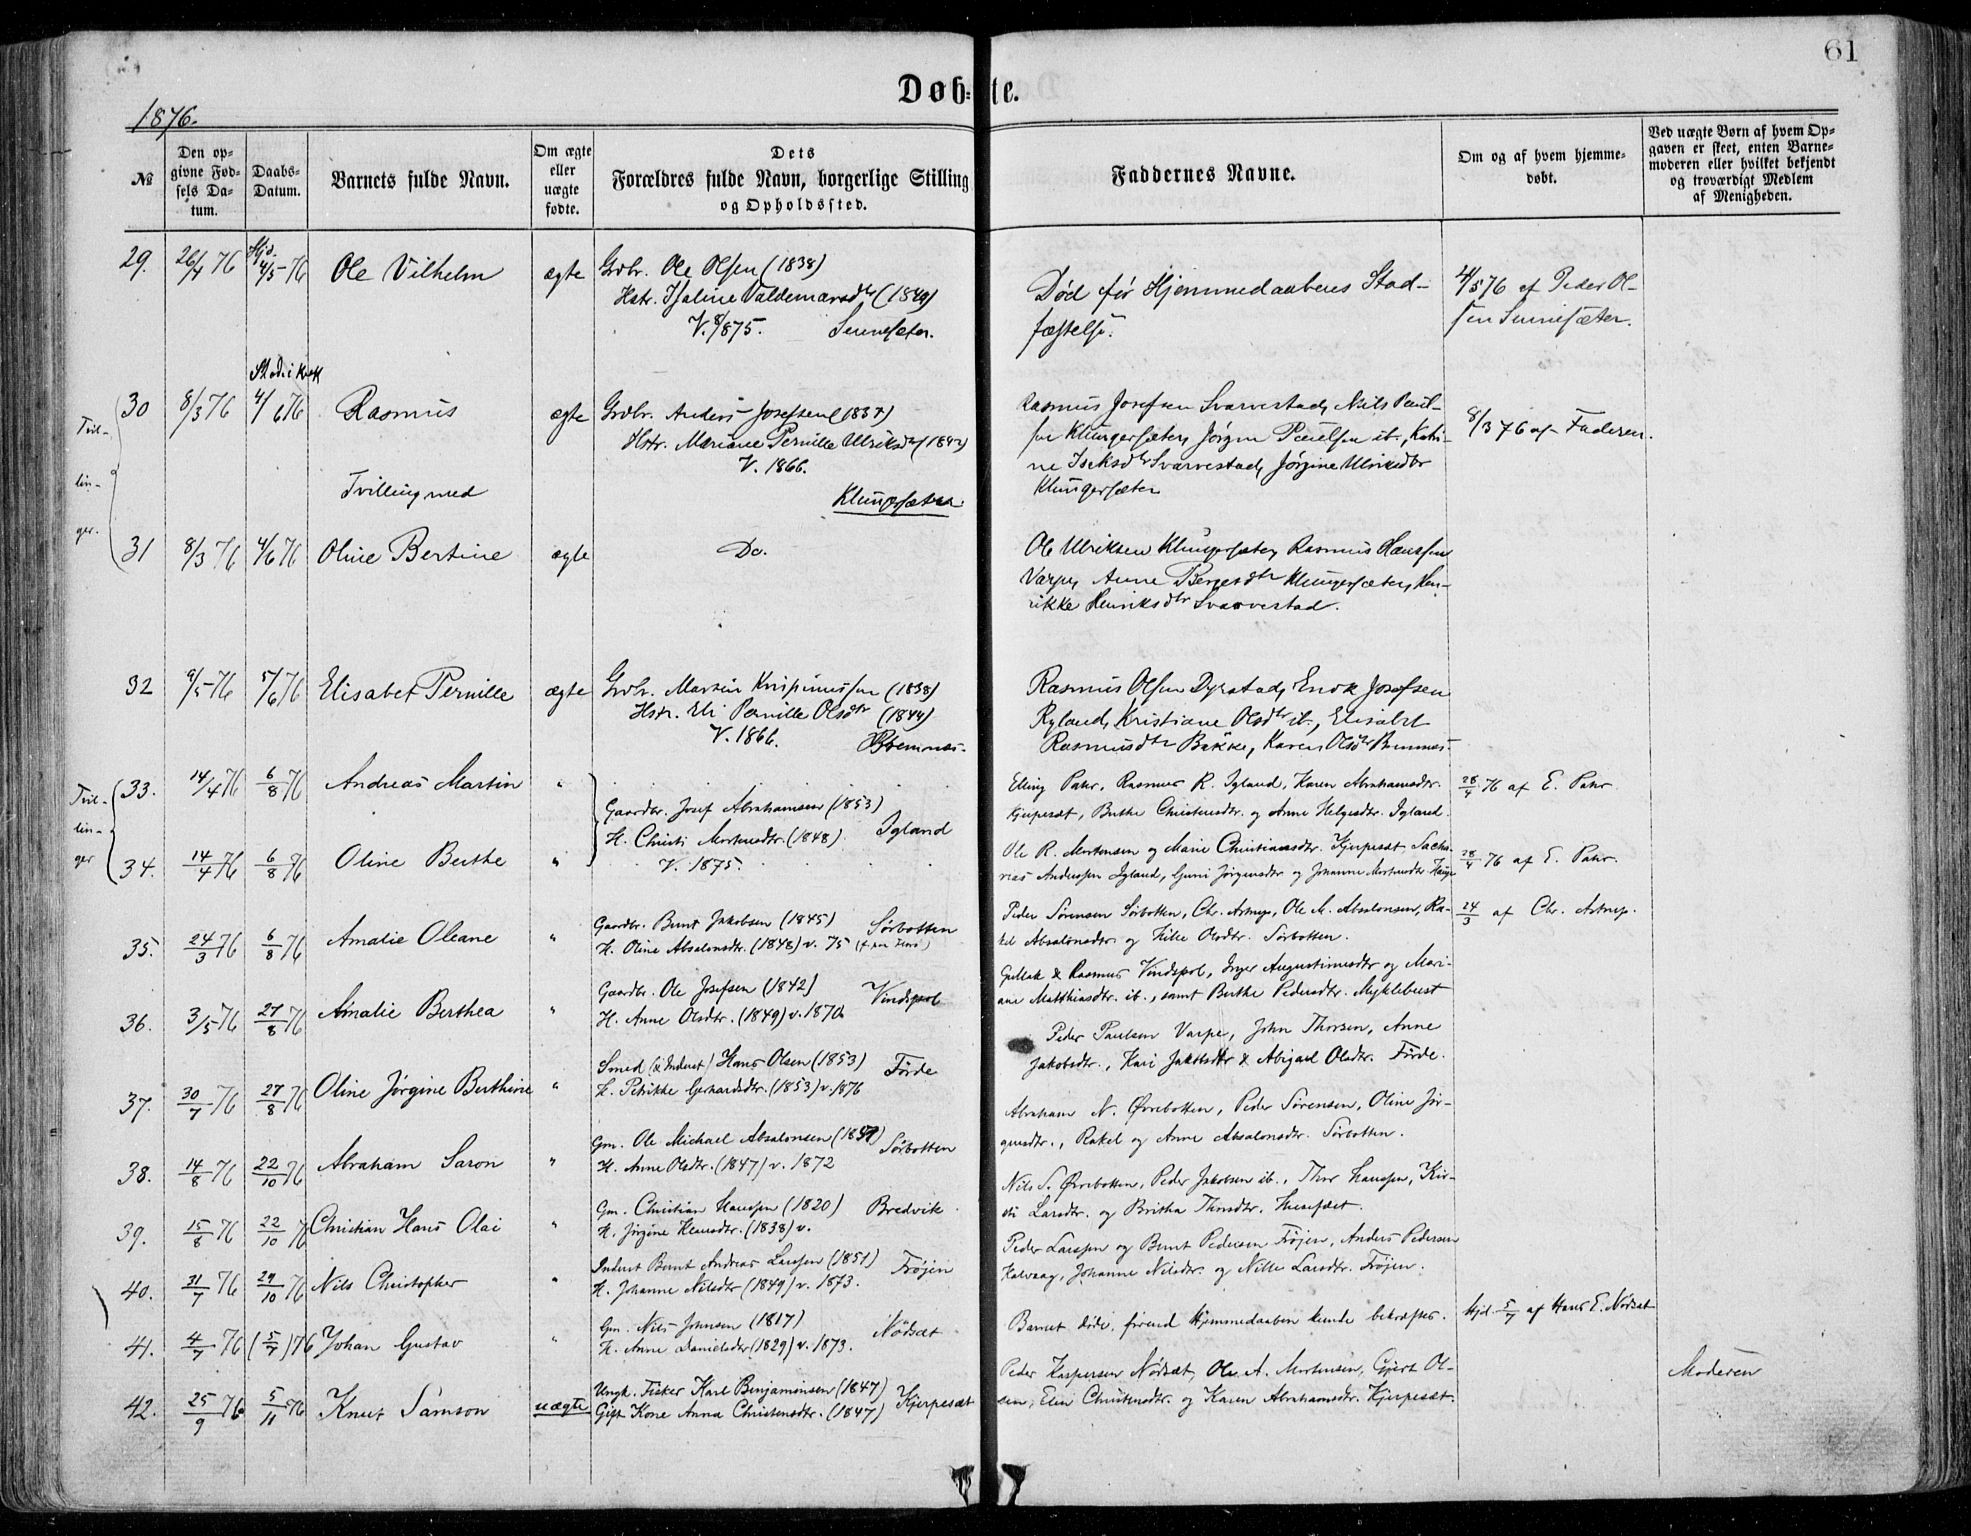 61
Døb=te.
1876.
№
Den op-
givne Fød-
sels Da-
tum.
Daabs-
Datum.
Barnets fulde Navn.
Om ægte
eller
uægte
fødte.
Dets
Forældres fulde Navn, borgerlige Stilling
og Opholdssted.
Faddernes Navne.
Om og af hvem hjemme-
døbt.
Ved uægte Børn af hvem Op-
gaven er skeet, enten Barne-
moderen eller hvilket bekjendt
og troværdigt Medlem
af Menigheden.
29. 26/4 76 Hjd. 4/5 76 Ole Vilhelm ægte Grdbr. Ole Olsen (1838)
Hstr. Valdemarsdtr (1849)
V. 8/875.
Død før Hjemmedaabens Stad-
fæstelse.
4/5 76 af Peder Ol-
sen
Tvil-
lin-
ger.
30 8/3 76 4/6 76 Rasmus ægte Grdbr. Anders Josefsen (1837)
Hstr. Mariane Pernille Ulriksdtr (1842)
V. 1866.
Klungersæter
Tvilling med
Rasmus Josefsen Svarvestad, Niels Paul-
sen Klungersæter, Jørgen Paulsen ib., Kati-
ne Isaksdtr Svarvestad, Jørgine Ulriksdtr
Klungersæter
8/3 76 af Faderen.
31 8/3 76 4/6 76 Oline Bertine ægte Do.
Ole Ulriksen Klungersæter, Rasmus Hanssen
Varpe, Anne Bergesdtr Klungersæter, Hen-
rikke Henriksdtr Svarvestad.
32 9/5 76 5/6 76 Elisabet Pernille ægte Grdbr. Martin Krispinussen (1838)
Hstr. Eli Pernille Olsdtr (1844)
V. 1866. Bremnes.
Rasmus Olsen Dyrstad, Enok Josefsen
Ryland, Kristiane Olsdtr ib., Elisabet
Rasmusdtr Bakke, Karen Olsdtr Bremnes.
Tvil-
lin-
ger
33. 14/4 76 6/8 76 Andreas Martin "
Gaardbr. Josef Abrahamsen (1853)
H. Christi Mortensdtr. (1848). Igland
V. 1875.
Elling Pahr, Rasmus R. Igland, Karen Abrahamsdtr.
Kjerpesæt, Berthe Christensdtr. og Anne Helgesdtr. Igland.
28/4 76 af E. Pahr
34. 14/4 76 6/8 76 Oline Berthe "
Ole R. Mortensen og Marie Christiansdtr. Kjerpesæt, Sacha-
rias Anderssen Igland, Guni Jørgensdtr og Johanne Mortensdtr Hauge
28/4 76 af E. Pahr.
35. 24/3 76 6/8 76 Amalie Oleane " Gaardbr. Bernt Jakobsen (1845) Sørbotten
H. Oline Absalonsdtr. (1848) v. 75
Peder Sørensen Sørbotten, Chr. Astrup, Ole M. Absalonsen, Ra-
kel Absalonsdtr. og Olsdtr. Sørbotten.
24/3 af Chr. Astrup.
36. 3/5 76 27/8 76 Amalie Berthea " Gaardbr. Ole Josefsen (1842) Vindspol
H. Anne Olsdtr. (1849) v. 1870.
Gullak & Rasmus Vindspol, Inger Augustinusdtr og Mari-
ane Matthiasdtr. ib., samt Berthe Pedersdtr. Myklebust
37. 30/7 76 27/8 76 Oline Jørgine Berthine " Smed (& Inderst) Hans Olsen (1853) Førde
H. Petrikke Gerhardsdtr. (1853) v. 1876
Peder Paulsen Varpe, John Thorsen, Anne
Jakobsdtr., Kari Jakobsdtr & Abigael Olsdtr. Førde.
38. 14/8 76 22/10 76 Abraham Saron " Gm. Ole Michael Absalonsen Sørbotten
H. Anne Olsdtr. (1847) v. 1872
Abraham N. Øvrebotten, Peder Sørensen, Oline Jør-
gensdtr., Rakel og Anne Absalonsdtr. Sørbotten.
39. 15/8 76 22/10 76 Christian Hans Olai " Gm. Christian Hanssen (1820) Bredvik
H. Jørgine (1838) v.
Nils S. Øvrebotten, Peder Jakobsen ib., Thor Hanssen, Kir-
sti Larsdtr. og Britha Thorsdtr. Husefæst.
40. 31/7 76 29/10 76 Nils Christopher " Inderst Bernt Andreas Larssen (1851) Frøjen
H. Johanne Nilsdtr (1849) v. 1873.
Peder Larssen og Bernt Pedersen Frøjen, Anders Pedersen
Kalvaag, Johanne Nilsdtr. og Nille Larsdtr. Frøjen.
41. 4/7 76 (5/7) 76 Johan Gustav " Gm. Nils Johnsen (1817) Nødsæt
H. Anne Danielsdtr (1829) v. 1873.
Barnet døde, forend Hjemmedaaben kunde bekræftes.
Hjd. 5/7 af Hans E. Nødsæt
42. 25/9 76 5/11 76 Knut Samson uægte Ungk. Fisker Karl Benjaminsen (1847) Kjerpesæt
Gift Kone Anna Christensdtr. (1847)
Peder Kaspersen Nødsæt, Ole A. Mortensen, Gjert Ol-
sen, Elen Christensdtr. og Karen Abrahamsdtr. Kjerpesæt.
Moderen